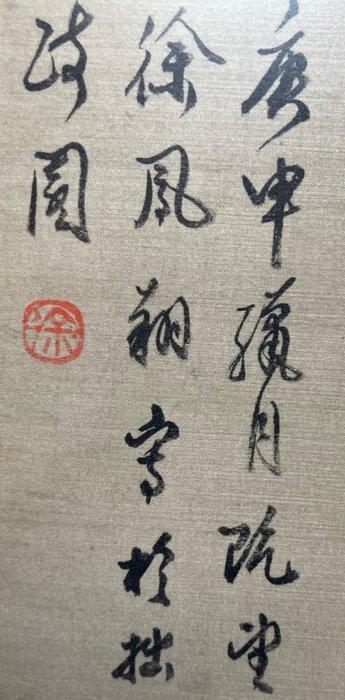 庚申臘月既望
徐鳳翔寫於拙
政園
徐